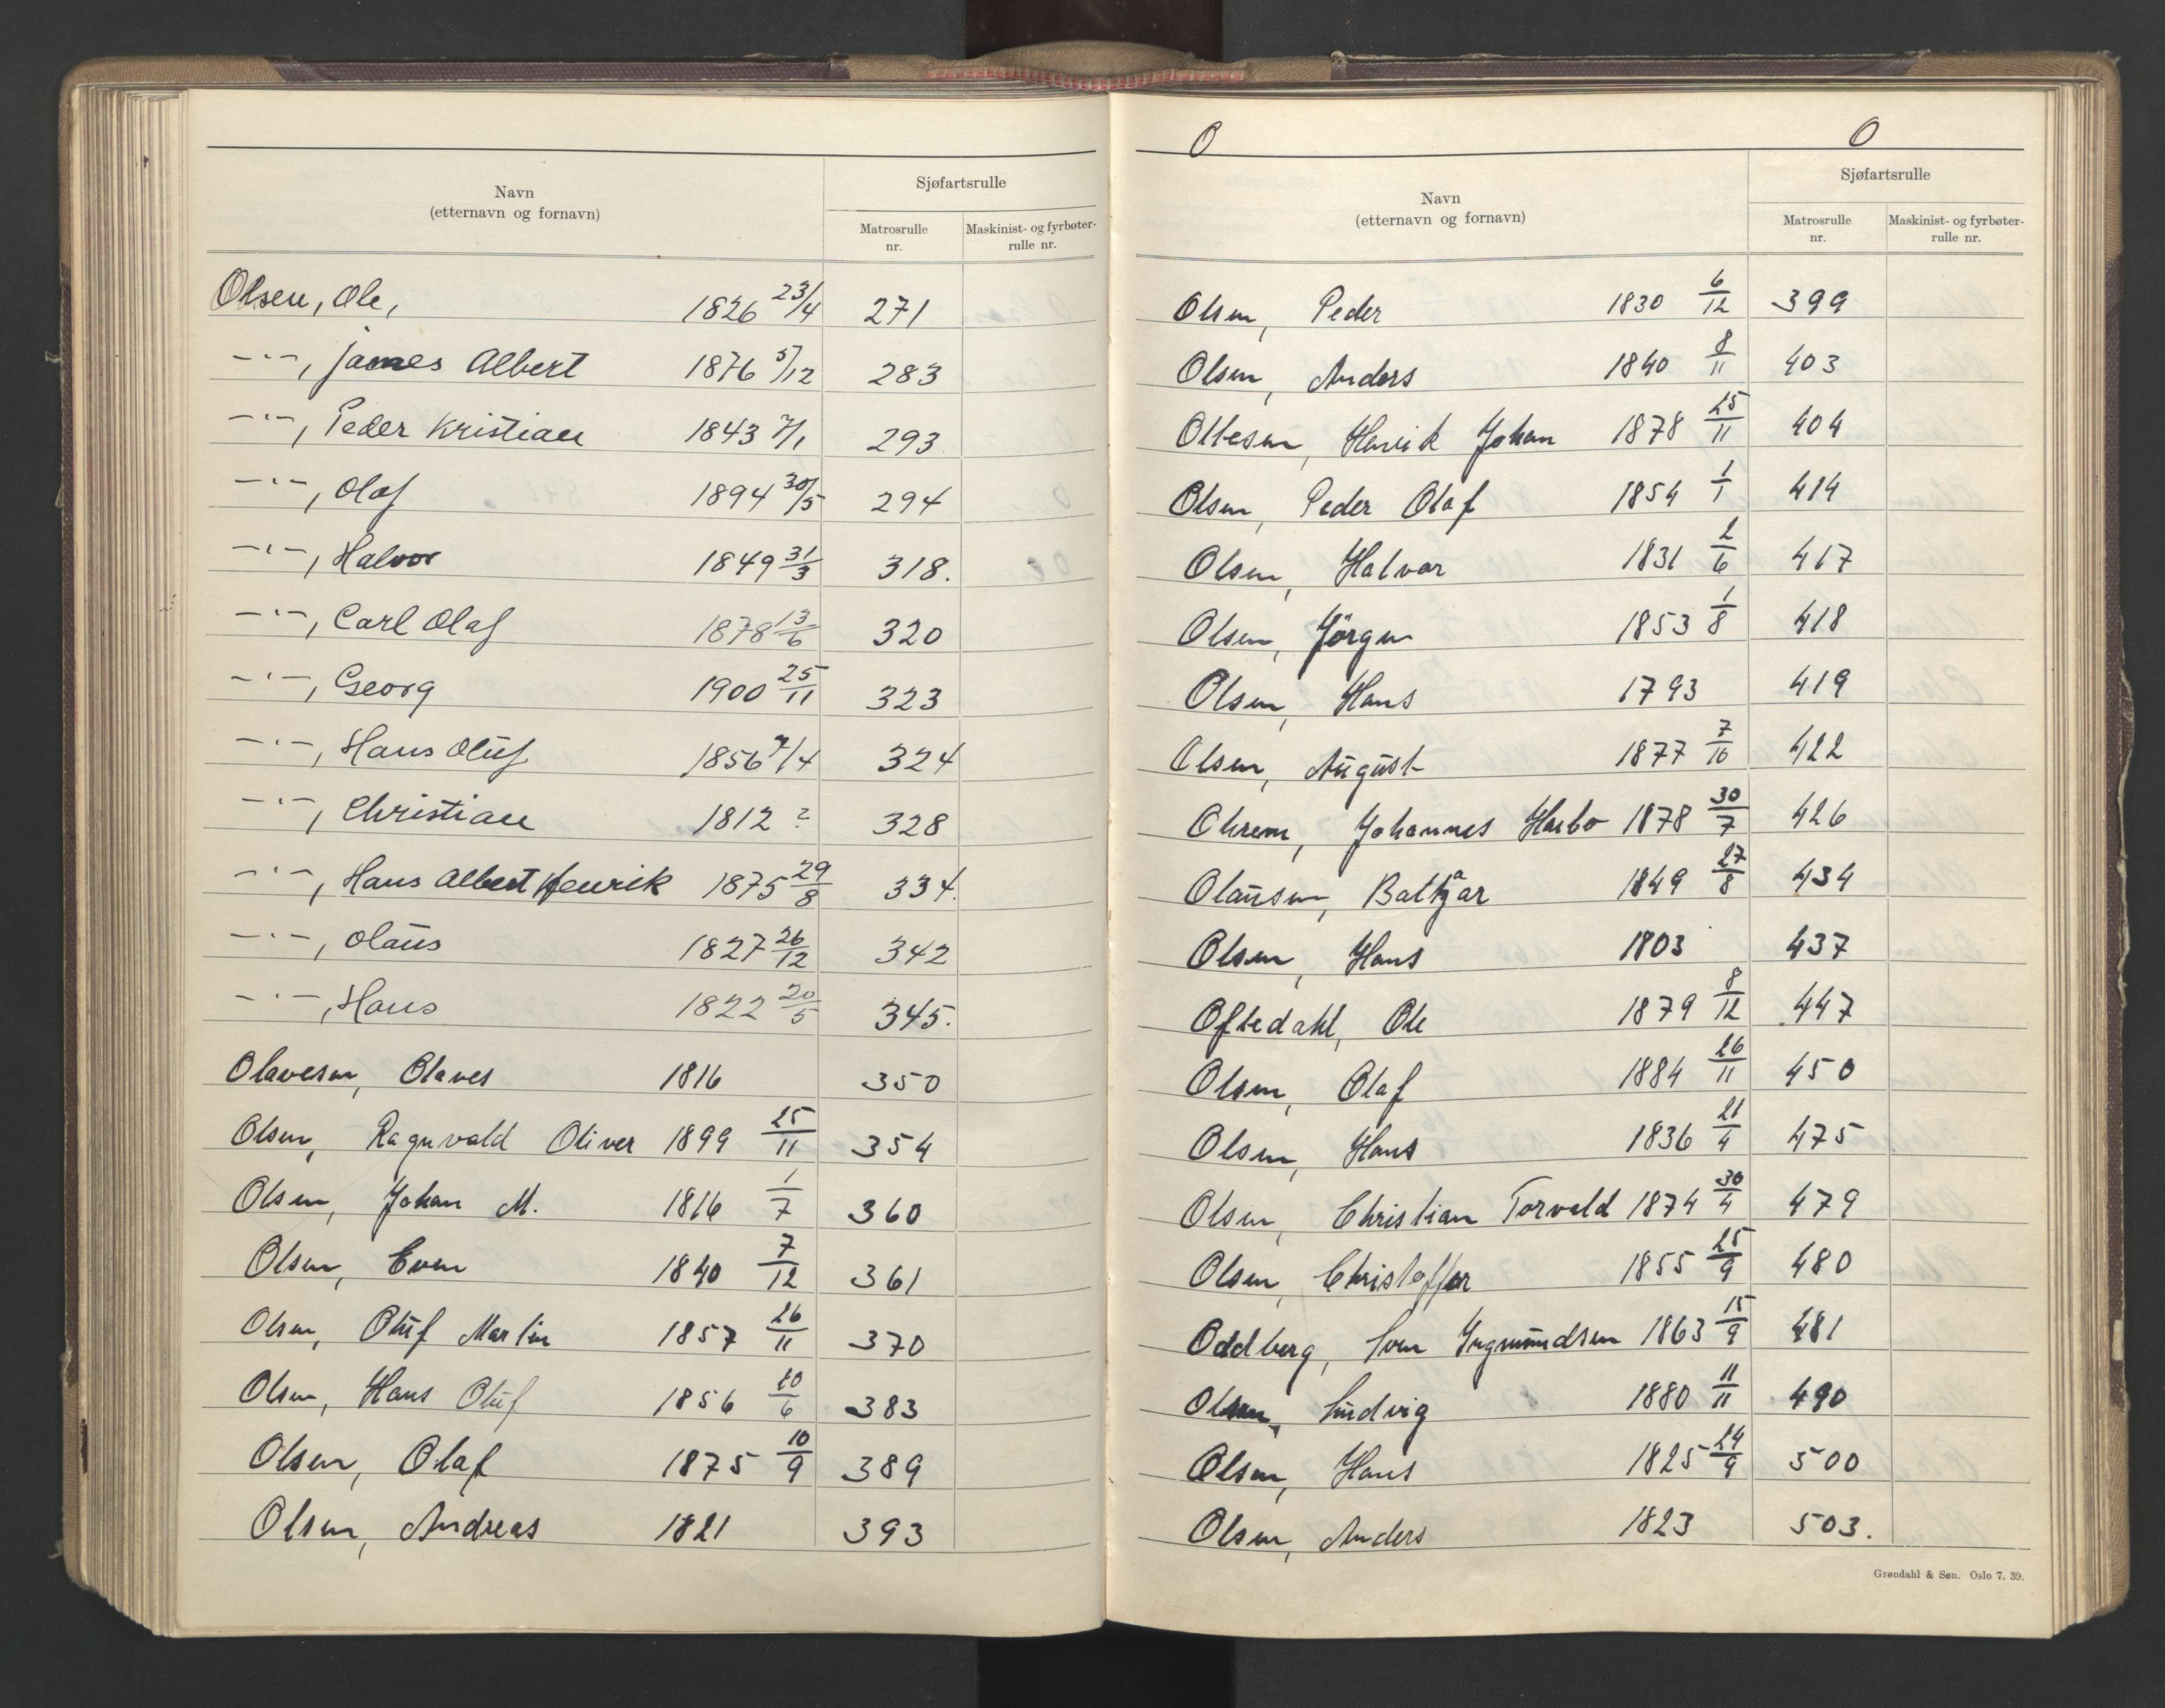 Navn
(etternavn og fornavn)
Sjøfartsrulle
Matrosrulle
nr.
Maskinist- og fyrbøter-
rulle nr.
Olsen, Ole, 1826 23/4 271
—"—, James Albert 1876 5/12 283
—"—, Peder Kristian 1843 7/1 293
—"—, Olaf 1894 30/5 294
—"—, Halvor 1849 31/3 318.
—"—, Carl Olaf 1878 13/6 320
—"—, Georg 1900 25/11 323
—"—, Hans Oluf 1856 7/4 324
—"—, Christian 1812 ? 328
—"—, Hans Albert Henrik 1875 29/8 334.
—"—, Olaus 1827 26/12 342
—"—, Hans 1822 20/5 345.
Olavesen, Olaves 1816 350
Olsen, Ragnvald Oliver 1899 25/11 354
Olsen, Johan M. 1816 1/7 360
Olsen, Even 1840 7/12 361
Olsen, Oluf Martin 1857 26/11 370
Olsen, Hans Oluf 1856 20/6 383
Olsen, Olaf 1875 10/9 389
Olsen, Andreas 1821 393
O O
Navn
(etternavn og fornavn)
Sjøfartsrulle
Matrosrulle
nr.
Maskinist- og fyrbøter-
rulle nr.
Olsen, Peder 1830 6/12 399
Olsen, Anders 1840 8/11 403
Ottesen, Henrik Johan 1878 25/11 404
Olsen, Peder Olaf 1854 1/1 414
Olsen, Halvar 1831 2/6 417
Olsen, Jörgen 1853 1/8 418
Olsen, Hans 1793 419
Olsen, August 1877 7/10 422
Ohrem, Johannes Harbo 1878 30/7 426
Olausen, Baltzar 1849 27/8 434
Olsen, Hans 1803 437
Oftedahl, Ole 1879 8/12 447
Olsen, Olaf 1884 26/11 450
Olsen, Hans 1836 21/4 475
Olsen, Christian Torvald 1874 30/4 479
Olsen, Christoffer 1855 25/9 480
Oddberg, Sven Yngmundsen 1863 15/9 481
Olsen, Ludvig 1880 11/11 490
Olsen, Hans 1825 24/9 500
Olsen, Anders 1823 503.
Grøndahl & Søn. Oslo 7. 39.